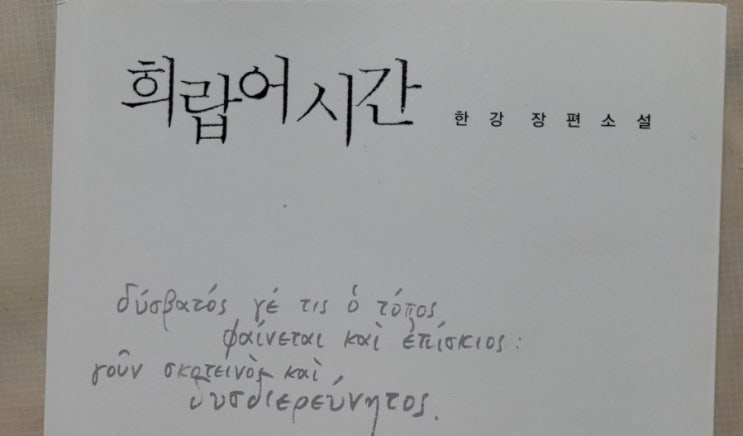 희랍어 시간
한강 장편소설
δύσβατός γέ τις ὁ τόπος
φαίνεται καὶ ἐπίσκιος:
γοῦν σκοτεινὸς καὶ
δυσδιερεύνητος.